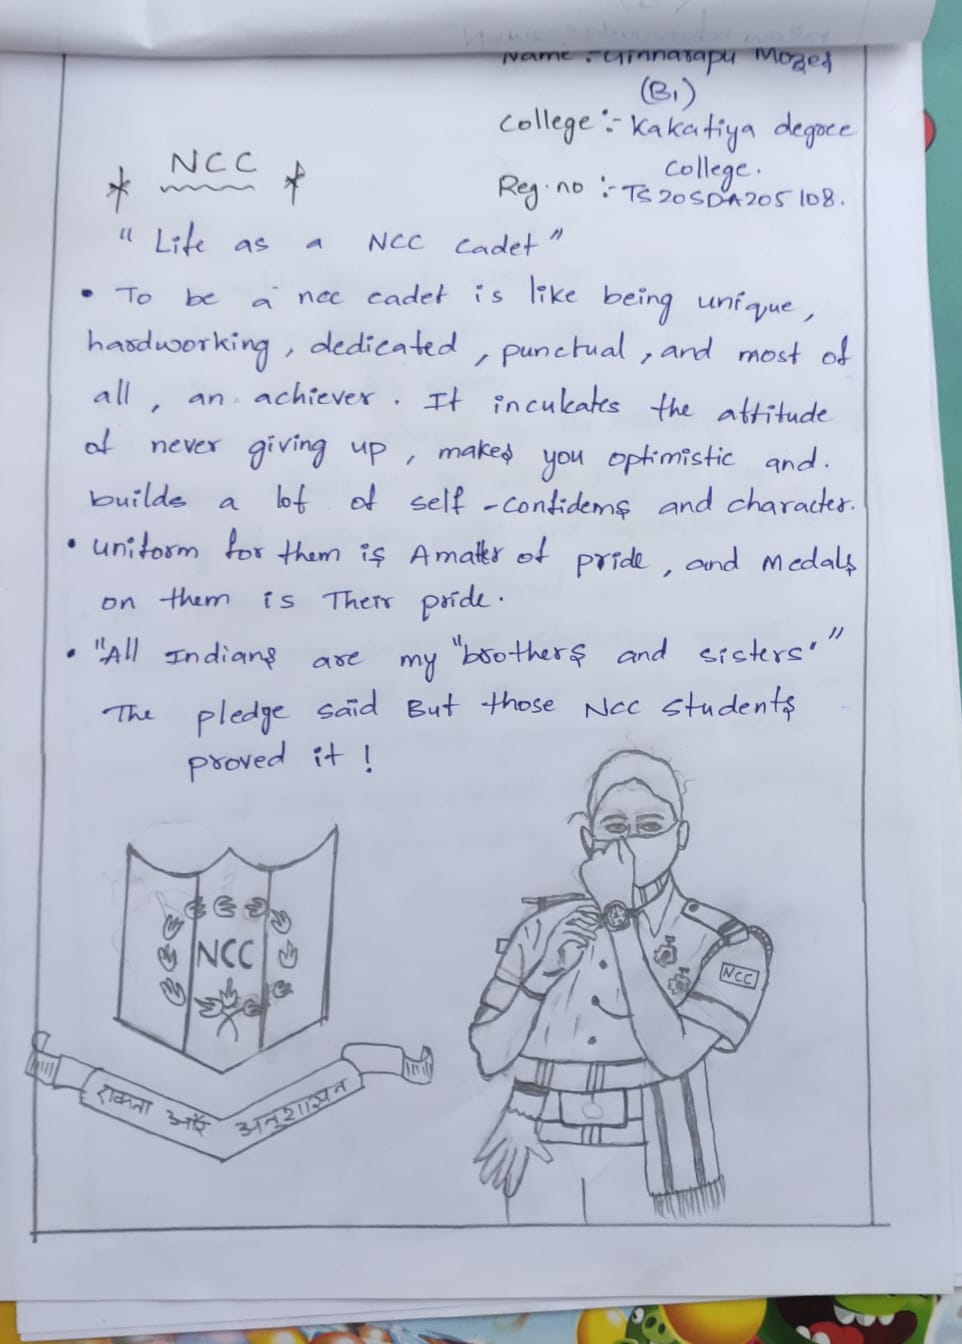 Name :- Ginnarapu Mozes
(B1)
college :- Kakatiya degree
college.
Reg.no :- TS20SDA205108.
* NCC *
"Life as a NCC cadet"
• To be a ncc cadet is like being unique,
hardworking, dedicated, punctual, and most of
all, an achiever. It inculcates the attitude
of never giving up, makes you optimistic and.
builds a lot of self-confidems and character.
• uniform for them is A matter of pride, and Medals
on them is Their pride.
• "All Indians are my "brothers and sisters."
The pledge said But those NCC students
proved it!
NCC
NCC
एकता और अनुशासन